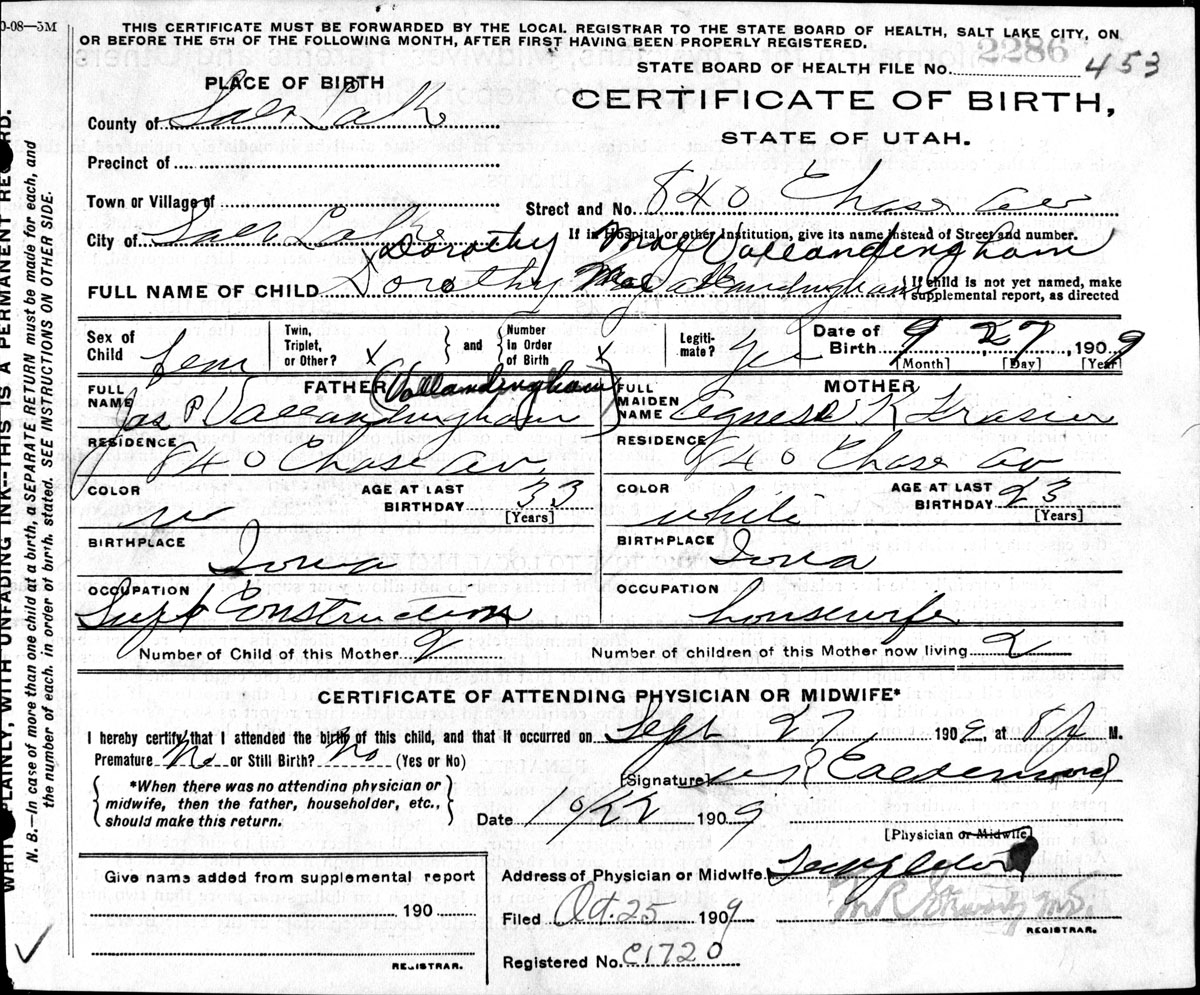 0-08—5M
THIS CERTIFICATE MUST BE FORWARDED BY THE LOCAL REGISTRAR TO THE STATE BOARD OF HEALTH, SALT LAKE CITY, ON
OR BEFORE THE 5TH OF THE FOLLOWING MONTH, AFTER FIRST HAVING BEEN PROPERLY REGISTERED.
2286
STATE BOARD OF HEALTH FILE No. 453
PLACE OF BIRTH
CERTIFICATE OF BIRTH,
STATE OF UTAH.
County of Salt Lake
Precinct of
Town or Village of
Street and No. 840 Chase av
City of Salt Lake
If in Hospital or other Institution, give its name instead of Street and number.
Dorothy Mae Vallandingham
FULL NAME OF CHILD Dorothy Mae Vallandingham
{If child is not yet named, make supplemental report, as directed
Sex of Child Fem
Twin, Triplet, or Other? x } and { Number in Order of Birth x
Legitimate? Yes
Date of Birth 9 27, 1909
[Month] [Day] [Year]
FATHER
(Vallandingham)
FULL NAME Jas P Vallandingham
RESIDENCE 840 Chase Av.
COLOR w
AGE AT LAST BIRTHDAY 33 [Years]
BIRTHPLACE Iowa
OCCUPATION Supt Construction
MOTHER
FULL MAIDEN NAME Agnes K Frasier
RESIDENCE 840 Chase av
COLOR white
AGE AT LAST BIRTHDAY 23 [Years]
BIRTHPLACE Iowa
OCCUPATION housewife
Number of Child of this Mother 2
Number of children of this Mother now living 2
CERTIFICATE OF ATTENDING PHYSICIAN OR MIDWIFE*
I hereby certify that I attended the birth of this child, and that it occurred on Sept 27 1909, at 8 M.
Premature No or Still Birth? No (Yes or No)
{ *When there was no attending physician or midwife, then the father, householder, etc., should make this return. }
[Signature]
Date 10/22 1909
[Physician or Midwife]
Address of Physician or Midwife
Give name added from supplemental report
190
REGISTRAR.
Filed Oct. 25 1909
M.D.
REGISTRAR.
Registered No. C1720
WRITE PLAINLY, WITH UNFADING INK—THIS IS A PERMANENT RECORD.
N. B.—In case of more than one child at a birth, a SEPARATE RETURN must be made for each, and
the number of each, in order of birth, stated. SEE INSTRUCTIONS ON OTHER SIDE.